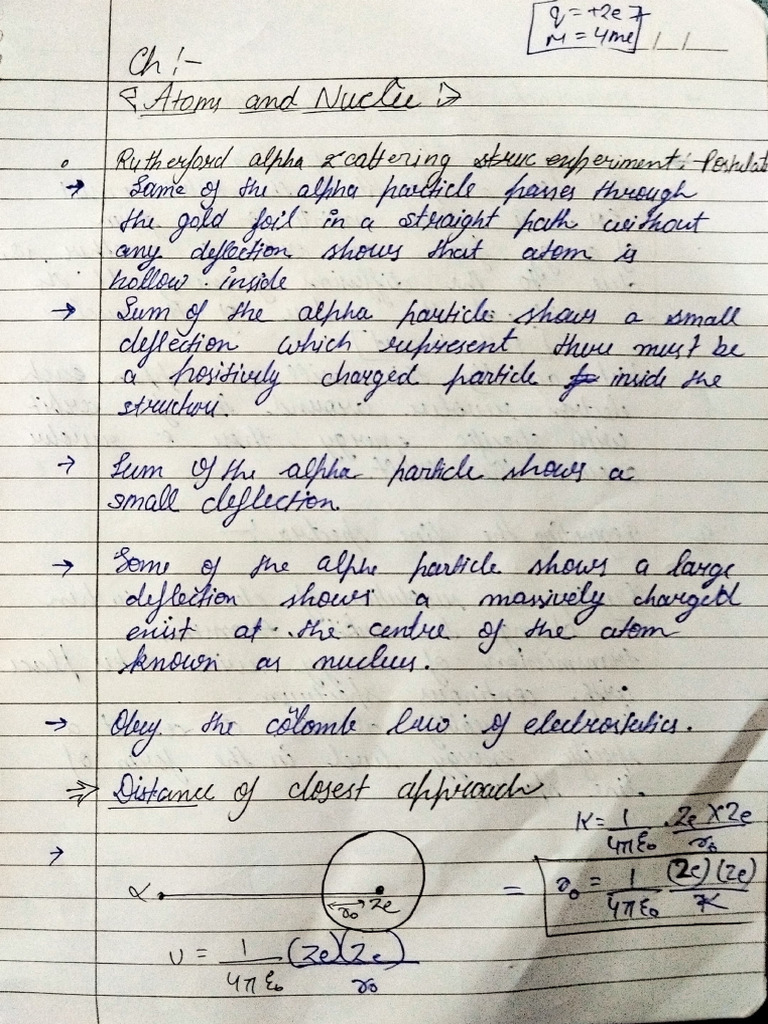 q = +2e
M = 4me
Ch :-
Atoms and Nuclie :-
Rutherford alpha scattering experiment. Postulat
→ Some of the alpha particle passes through
the gold foil in a straight path without
any deflection shows that atom is
hollow inside
→ Sum of the alpha particle shows a small
deflection which represent there must be
a positively charged particle inside the
structure.
→ Sum of the alpha particle shows a
small deflection.
→ Some of the alpha particle shows a large
deflection shows a massively charged
exist at the centre of the atom
known as nucleus.
→ Obey the colomb law of electrostatics.
⇒ Distance of closest approach
K = 1/4πε₀ · Ze × 2e/r₀
→
α r₀ Ze
= r₀ = 1/4πε₀ (Ze)(2e)/K
U = 1/4πε₀ (Ze)(2e)/r₀